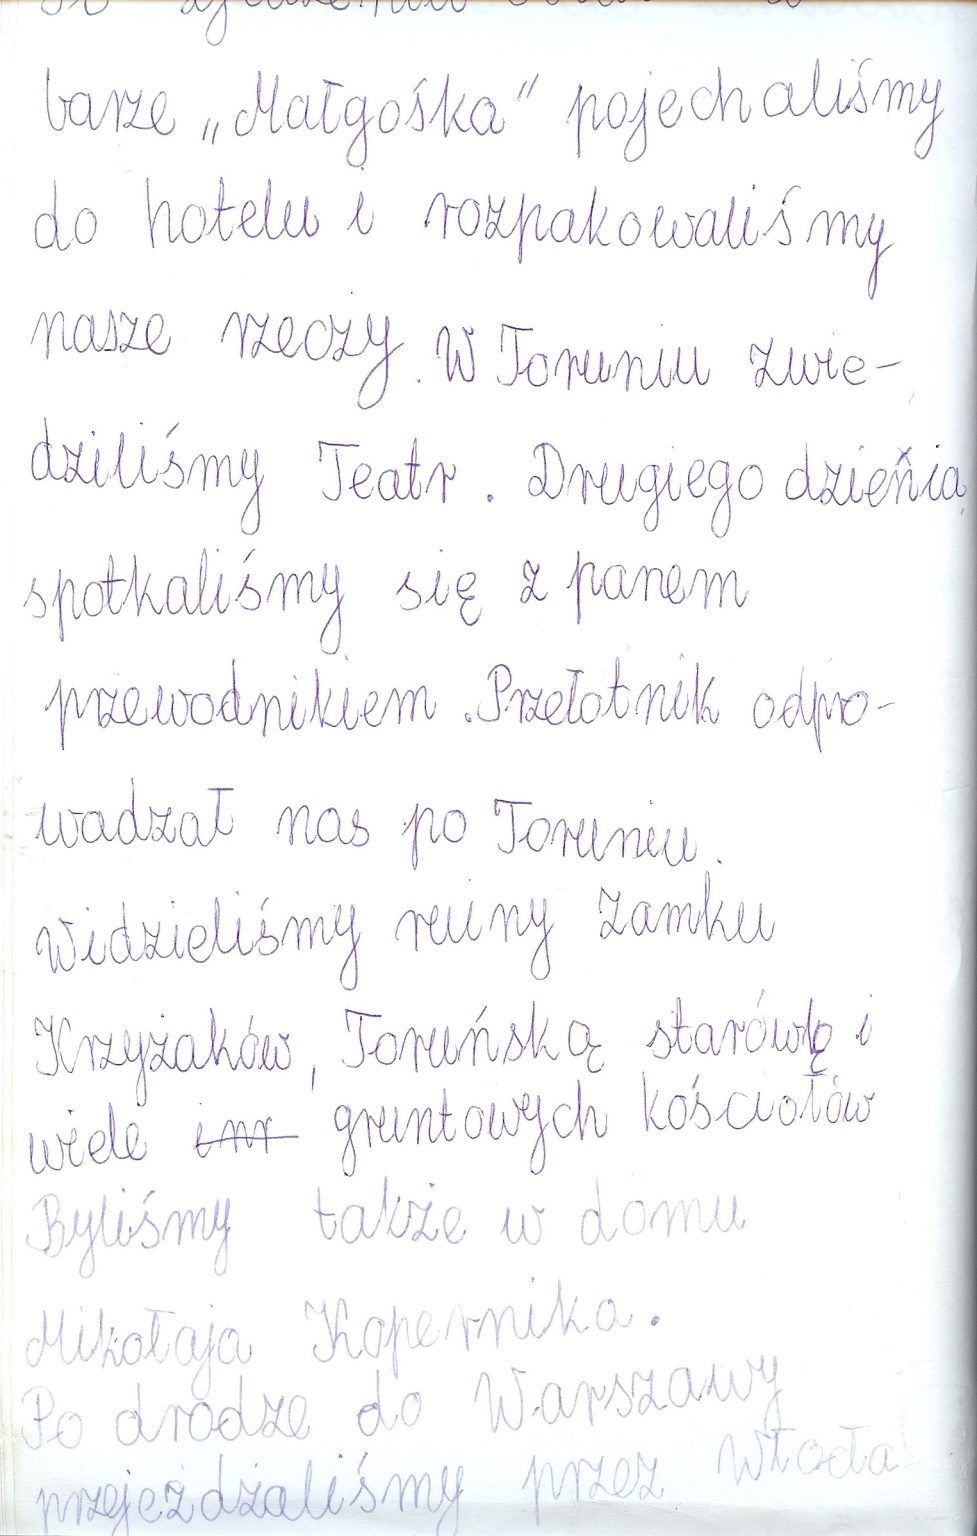 barze „Małgośka” pojechaliśmy
do hotelu i rozpakowaliśmy
nasze rzeczy. W Toruniu zwie-
dziliśmy Teatr. Drugiego dzieńia
spotkaliśmy się z panem
przewodnikiem. Przełotnik odpro-
wadzał nas po Toruniu.
Widzieliśmy ruiny zamku
Krzyżaków, Toruńską starówę i
wiele inr gruntowych kościołów
Byliśmy także w domu
Mikołaja Kopernika.
Po drodze do Warszawy
przejeżdżaliśmy przez Włocła